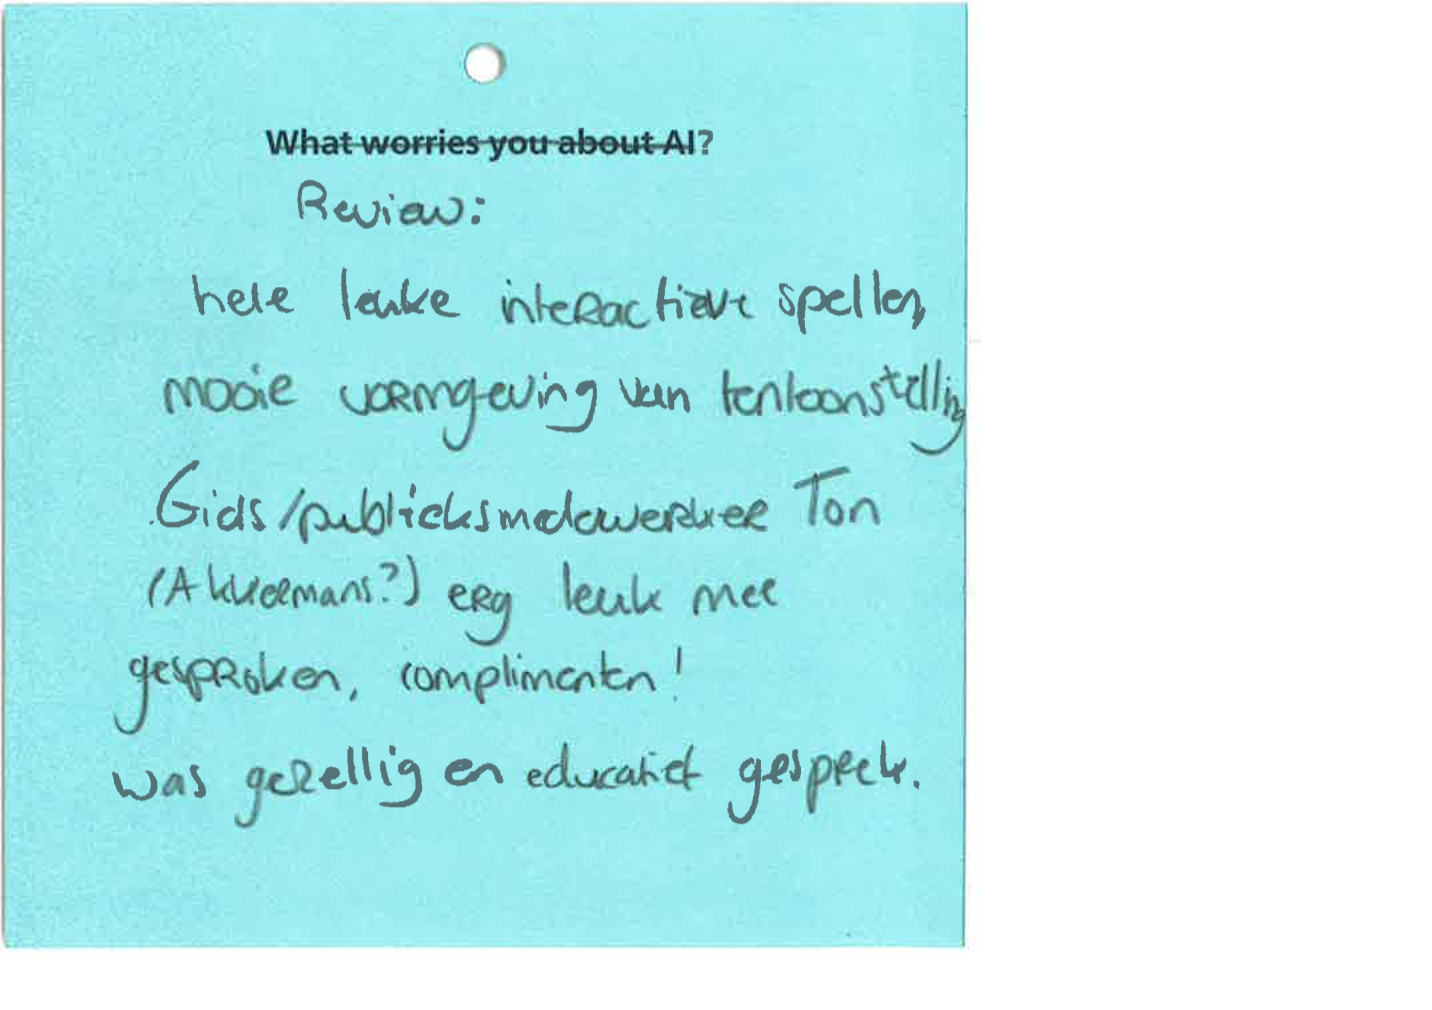 What worries you about AI?
Review:
hele leuke interactieve spellen,
mooie vormgeving van tentoonstelling
Gids/publieksmedewerker Ton
(Akkermans?) erg leuk mee
gesproken, complimenten!
was gezellig en educatief gesprek.